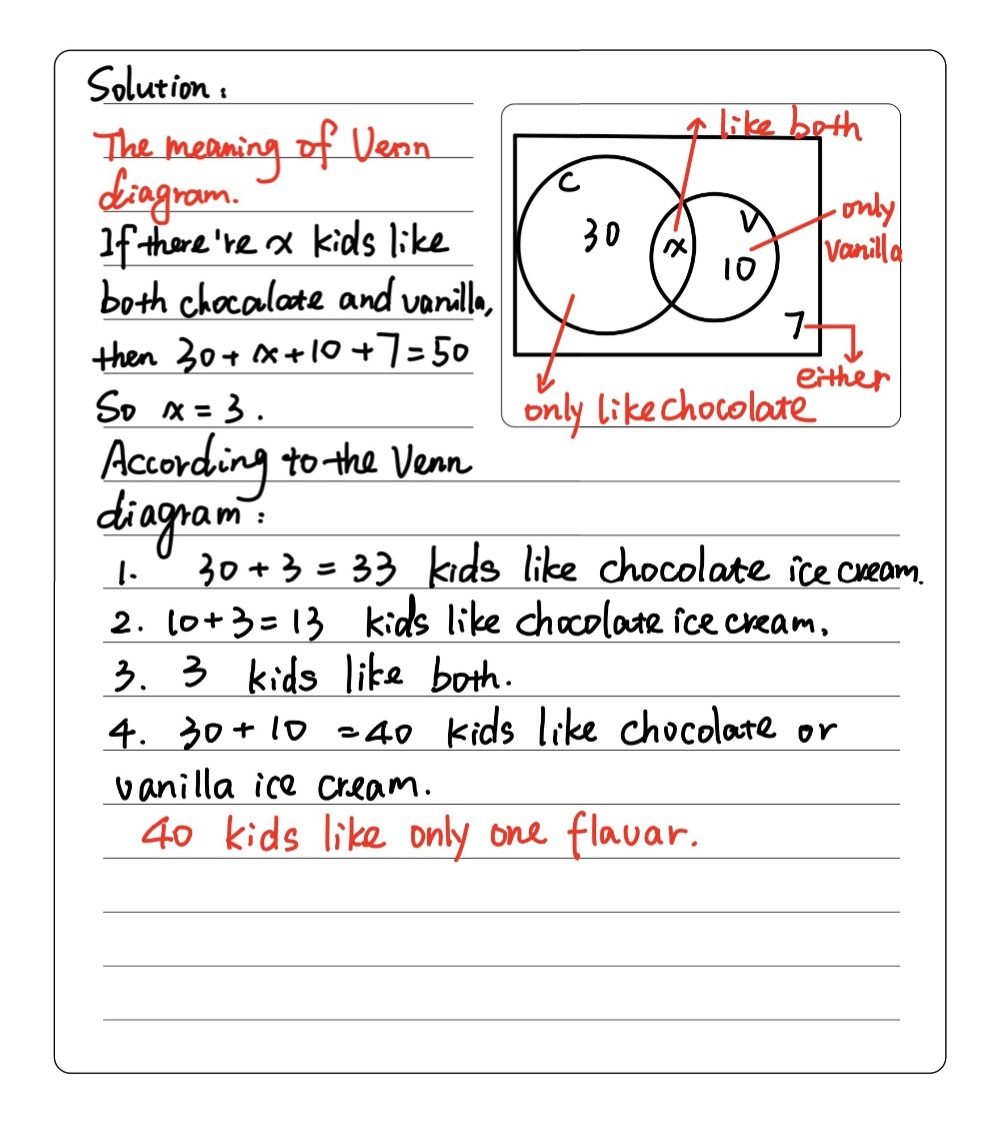 Solution:
The meaning of Venn
diagram.
If there're x kids like
both chocalate and vanilla,
then 30 + x + 10 + 7 = 50
So x = 3.
like both
C
30
x
V
10
only
vanilla
7
either
only like chocolate
According to the Venn
diagram:
1. 30 + 3 = 33 kids like chocolate ice cream.
2. 10 + 3 = 13 kids like chocolate ice cream.
3. 3 kids like both.
4. 30 + 10 = 40 kids like chocolate or
vanilla ice cream.
40 kids like only one flavar.